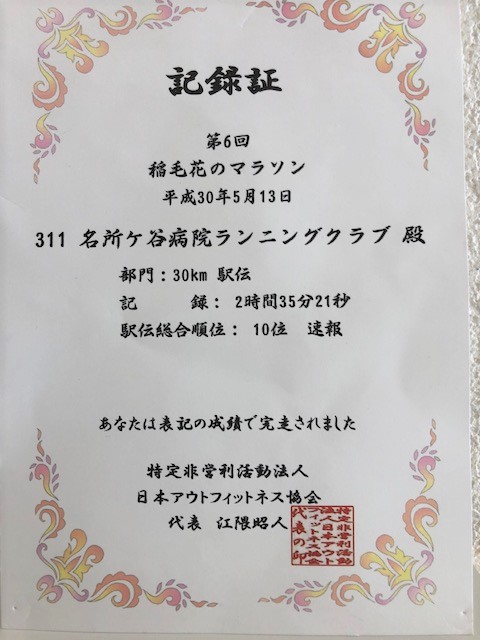 記録証
第6回
稲毛花のマラソン
平成30年5月13日
311 名所ケ谷病院ランニングクラブ 殿
部門：30km 駅伝
記　　録： 2時間35分21秒
駅伝総合順位： 10位　速報
あなたは表記の成績で完走されました
特定非営利活動法人
日本アウトフィットネス協会
代表　江隈昭人
特定非営利活動
法人日本アウト
フィットネス協会
代表の印